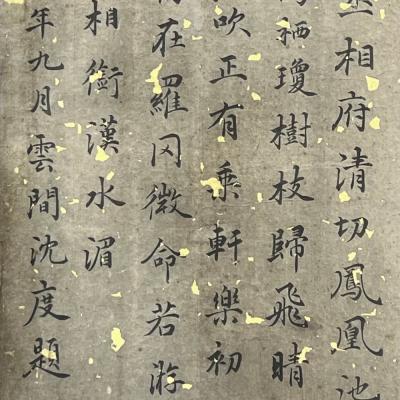 相府清切鳳凰池
栖瓊樹枝歸飛晴
吹正有乗軒樂初
在羅罔微命若游
相銜漢水湄
年九月雲間沈度題